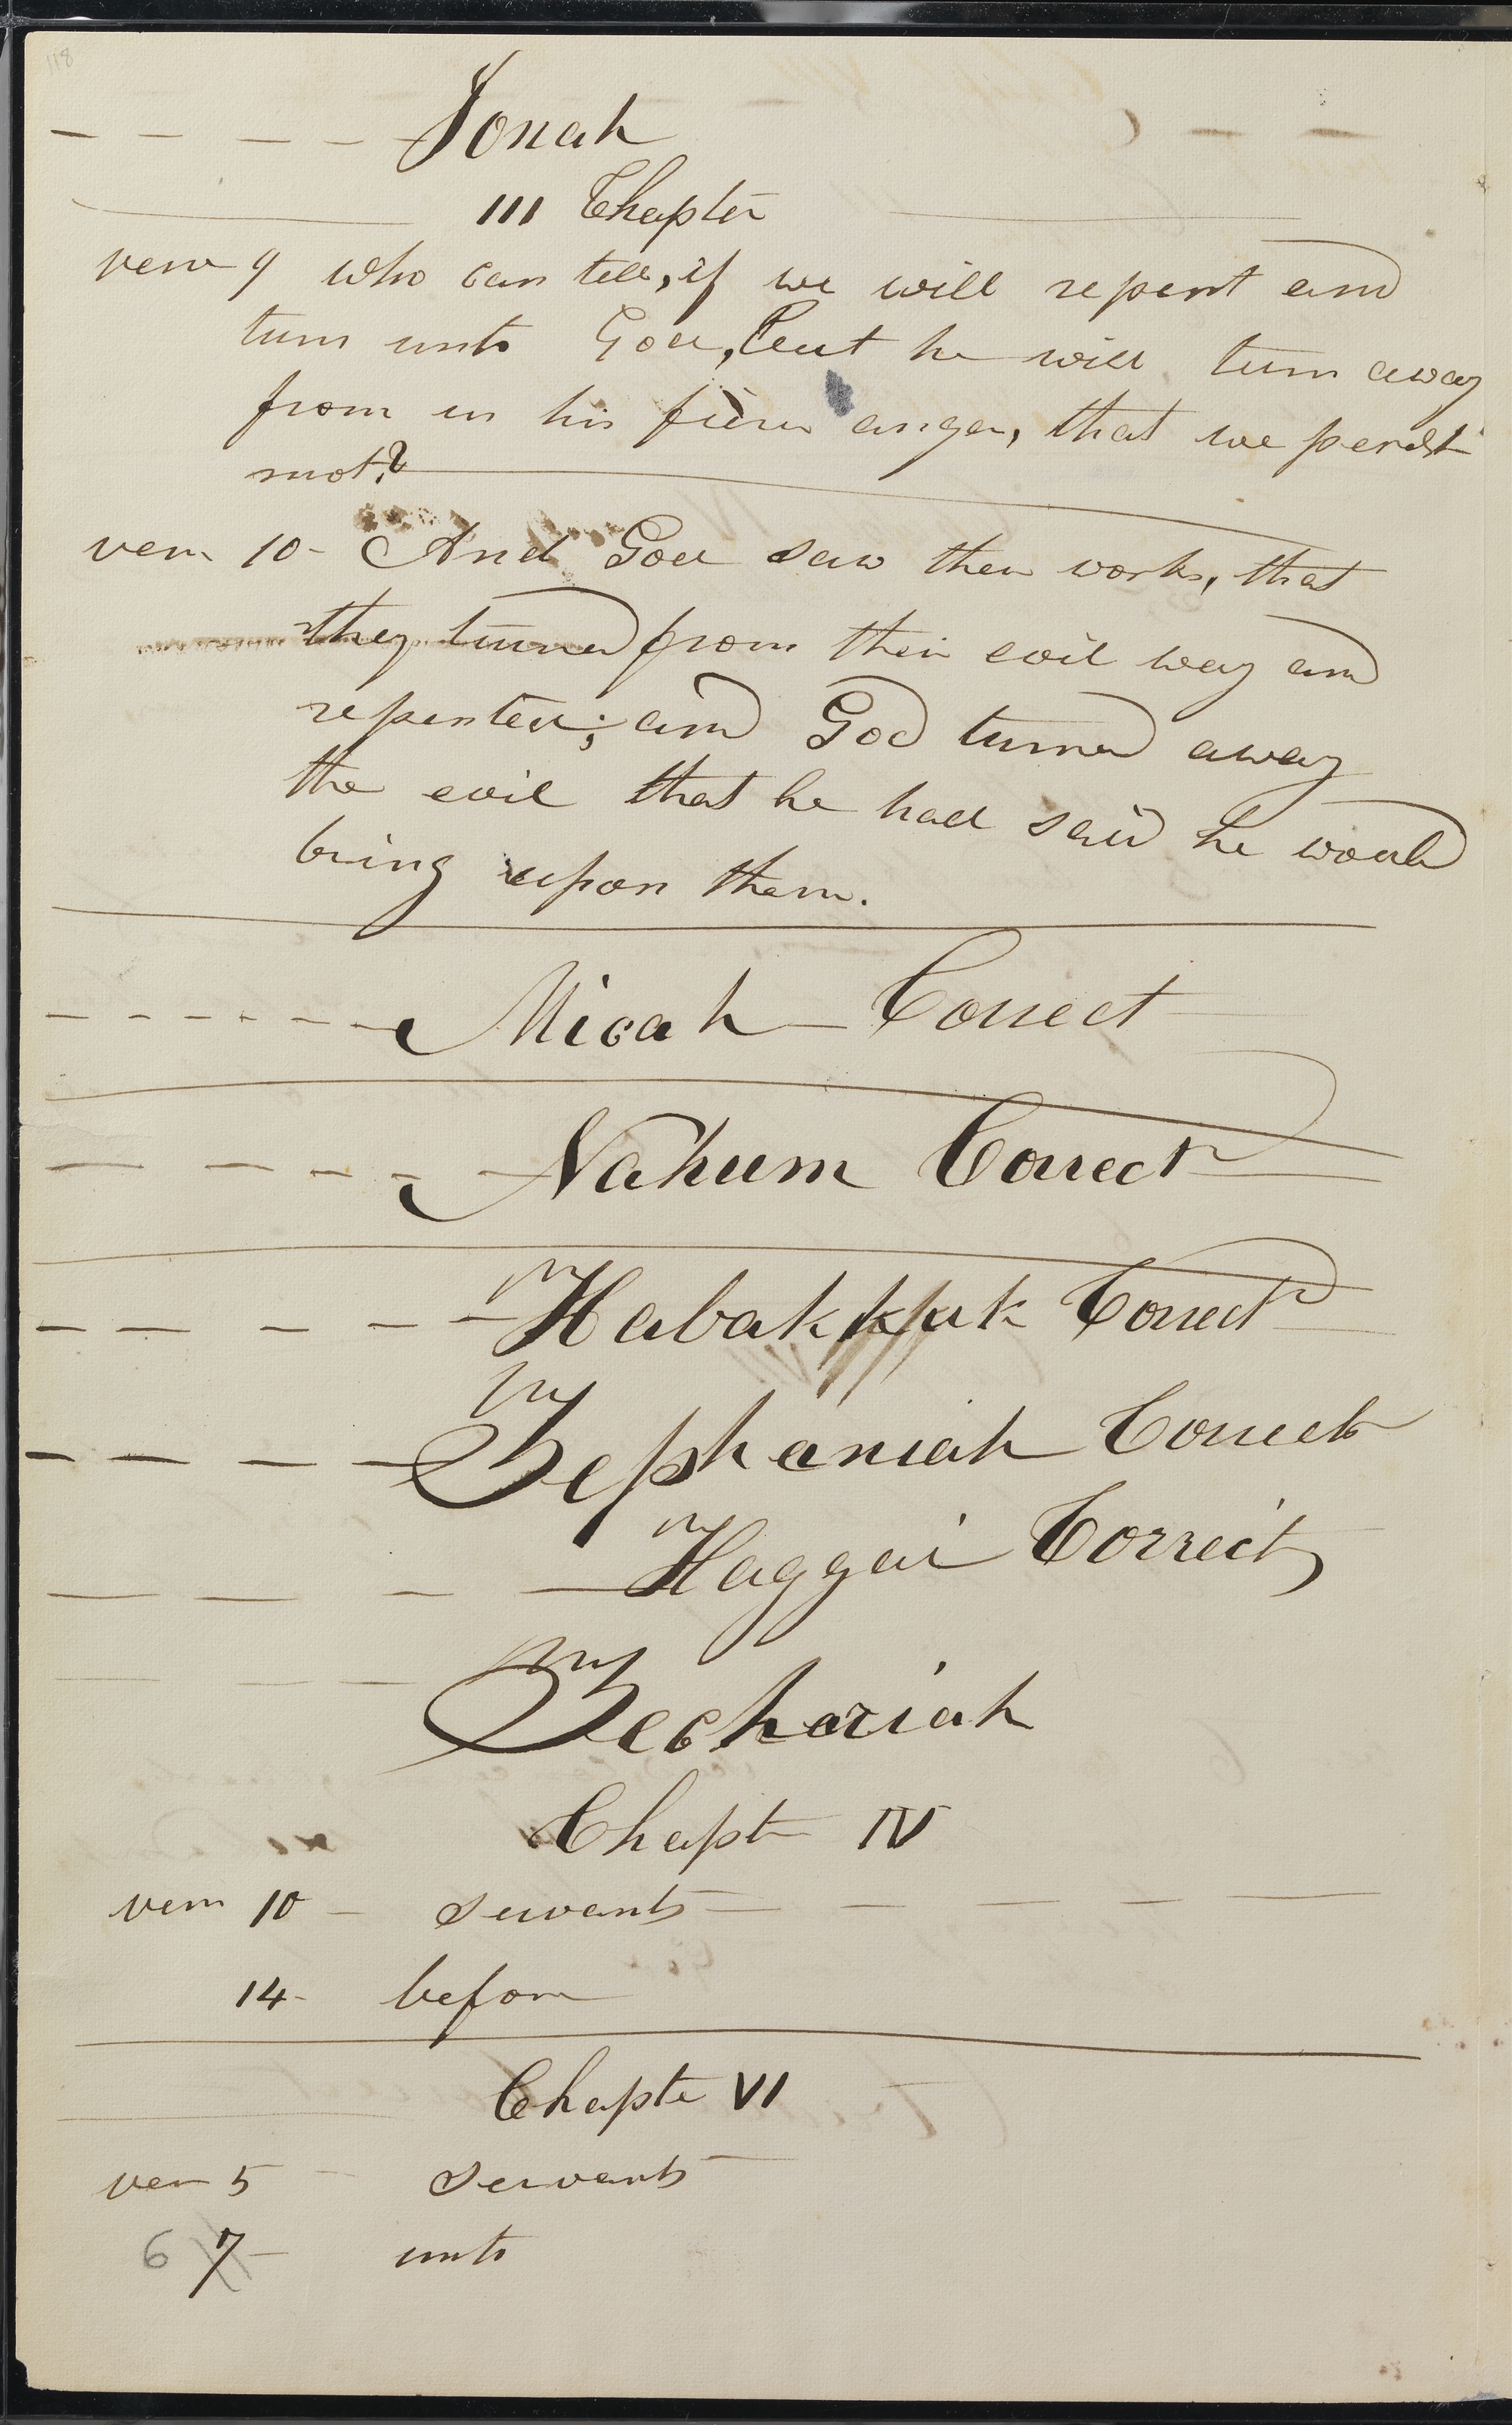 118
Jonah
III Chapter
verse 9 who can tell, if we will repent and
turn unto God, but he will turn away
from us his fierce anger, that we perish
not?
verse 10- And God saw their works, that
they turned from their evil way and
repented; and God turned away
the evil that he had said he would
bring upon them.
Micah - Correct
Nahum Correct
Habakkuk Correct
Zephaniah Correct
Haggai Correct
Zechariah
Chapter IV
verse 10 - servants
14- before
Chapter VI
verse 5 servants
6 7- unto